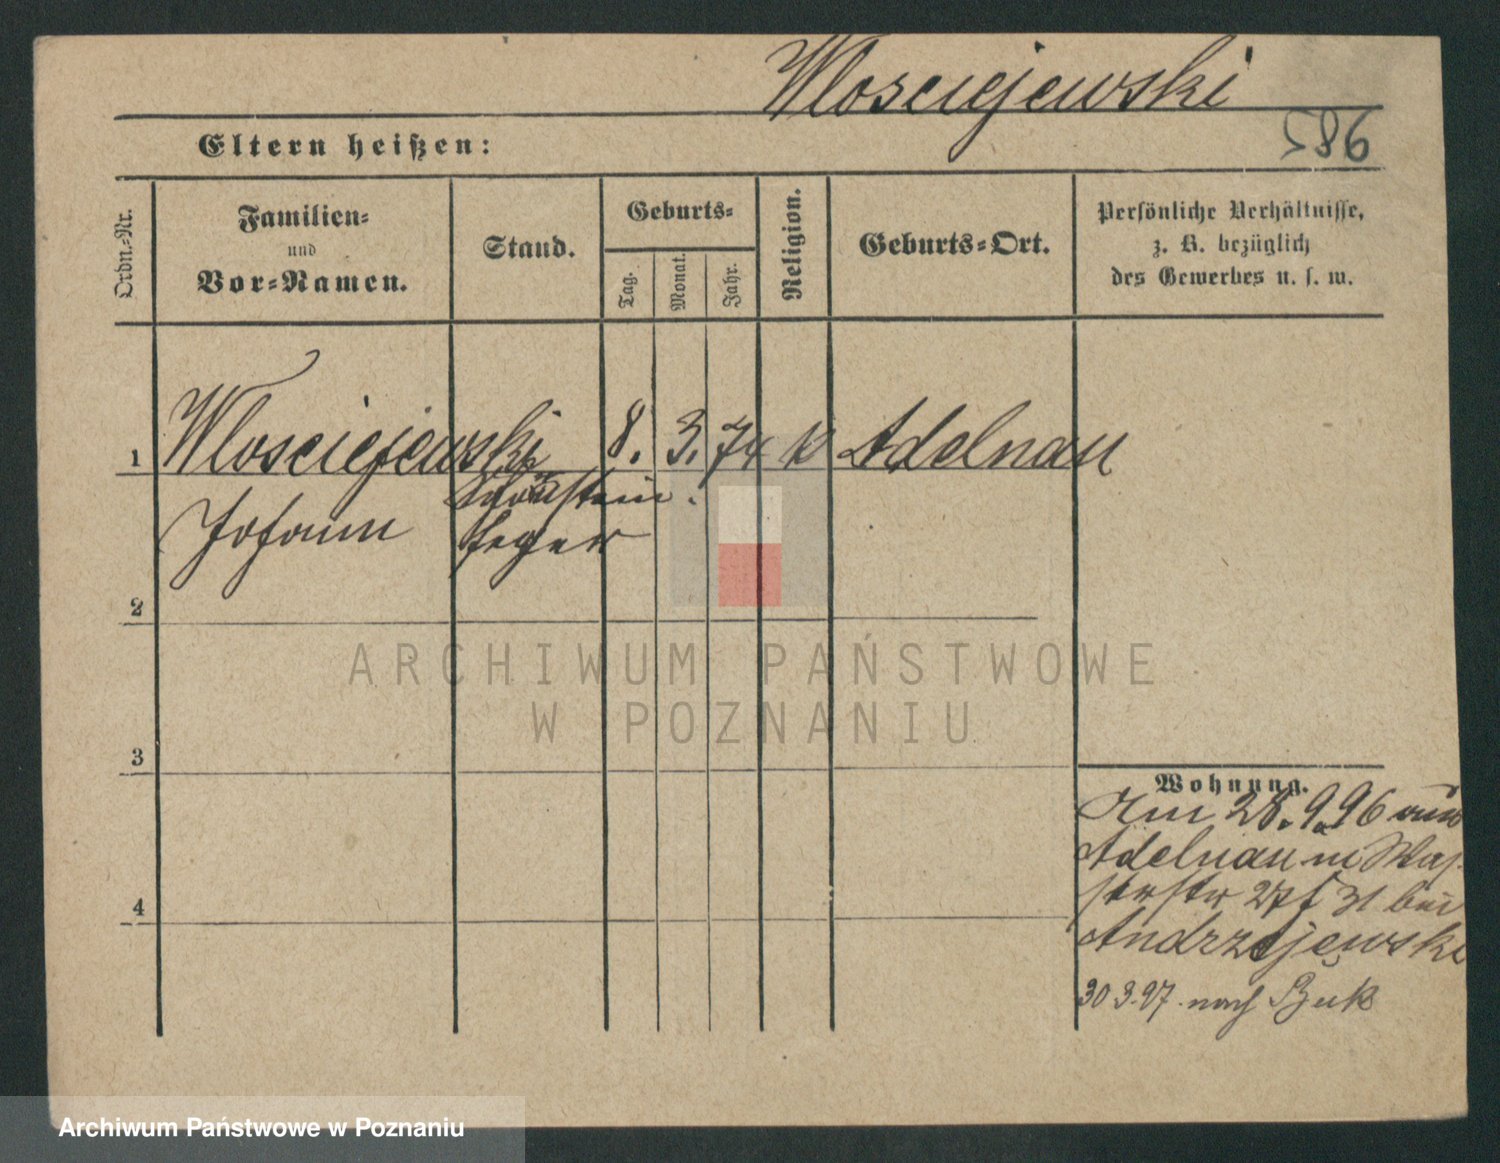 Wlosciejewski
586
Eltern heißen:
Ordn.-Nr.
Familien-
und
Vor-Namen.
Stand.
Geburts-
Tag.
Monat.
Jahr.
Religion.
Geburts-Ort.
Persönliche Verhältnisse,
z. B. bezüglich
des Gewerbes u. s. w.
1 Wlosciejewski 8. 3. 74 k Adelnau
Johann Schornstein
feger
2
ARCHIWUM PAŃSTWOWE
W POZNANIU
3
Wohnung.
Am 28.9.96 aus
Adelnau n Was-
serstr 27 31 bei
4
Andrzejewski
30 3.97. nach Buk
Archiwum Państwowe w Poznaniu